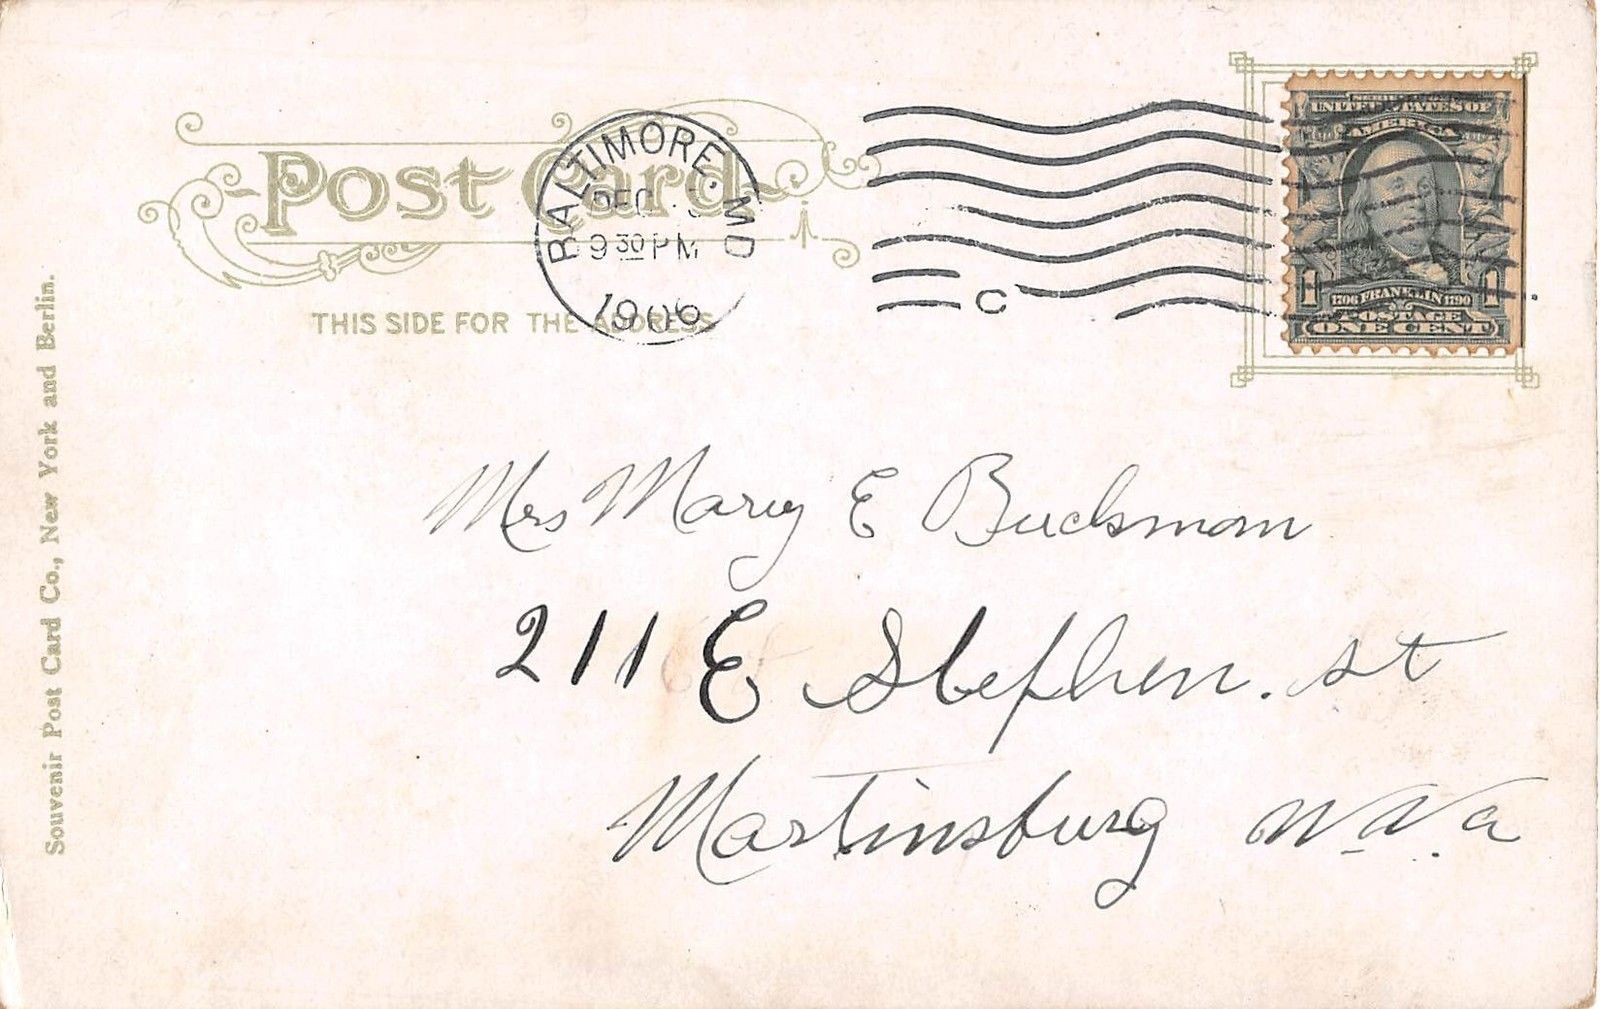 Post Card
THIS SIDE FOR THE ADDRESS
BALTIMORE. MD
DEC
9 30 PM
1906
C
UNITED STATES OF
AMERICA
1 1706 FRANKLIN 1790 1
POSTAGE
ONE CENT
Mrs Mary E Buckman
211 E Stephen. St
Martinsburg W. Va
Souvenir Post Card Co., New York and Berlin.